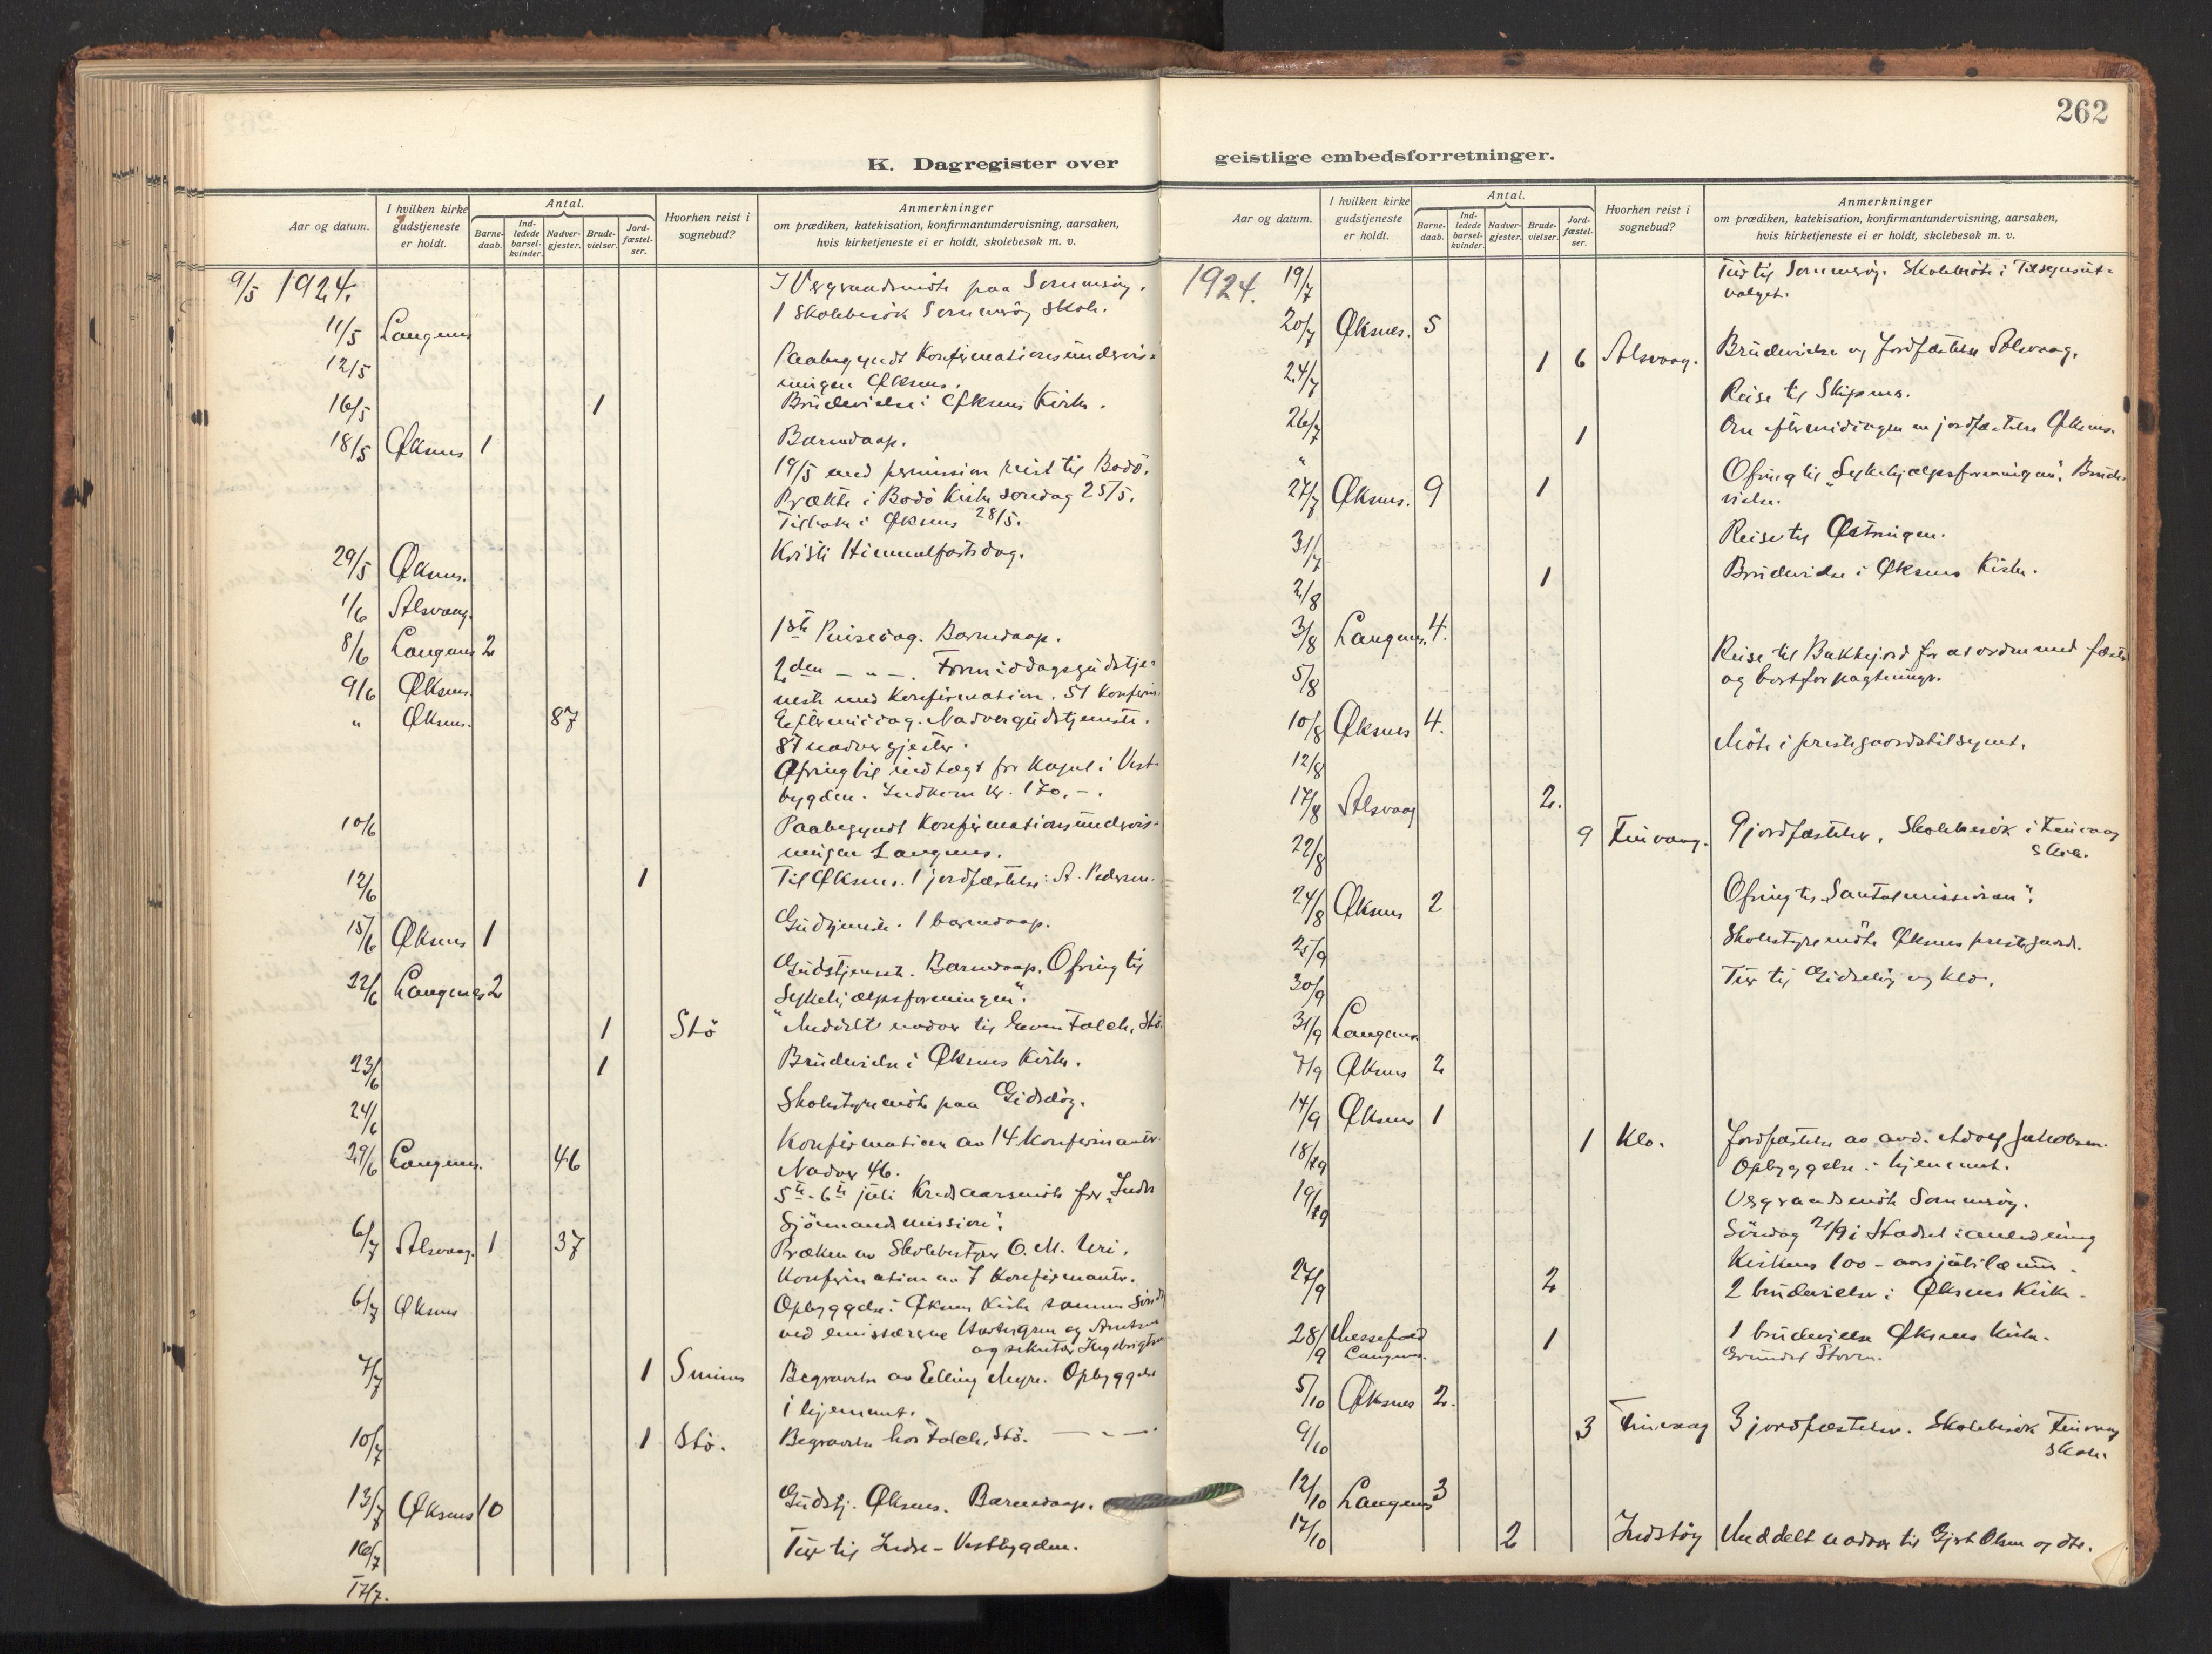 262
K. Dagregister over
geistlige embedsforretninger.
Aar og datum.
I hvilken kirke gudstjeneste er holdt.
Antal.
Barne-daab.
Ind-ledede barsel-kvinder.
Nadver-gjester.
Brude-vielser.
Jord-fæstel-ser.
Hvorhen reist i sognebud?
Anmerkninger
om prædiken, katekisation, konfirmantundervisning, aarsaken,
hvis kirketjeneste ei er holdt, skolebesøk m. v.
9/5 1924. Vergeraadsmöte paa Sommeröy.
1 Skolebesök Sommeröy Skole.
11/5 Langenes
12/5 Paabegyndt Konfirmationsundervis-
ningen Øksnes.
16/5 1 Brudevielse i Øksnes Kirke.
18/5 Øksnes 1 Barnedaap.
19/5 med permission reist til Bodö.
Prækte i Bodö Kirke söndag 25/5.
Tilbake i Øksnes 28/5.
29/5 Øksnes. Kristi Himmelfartsdag.
1/6 Alsvaag.
8/6 Langenes 2 1ste Pinsedag. Barnedaap.
9/6 Øksnes. 2den - " -. Formiddagsgudstje-
neste med Konfirmation. 51 Konfirm.
" Øksnes. 87 Eftermiddag. Nadvergudstjeneste.
87 nadvergjester.
Ofring til indtægt for Kapel i Vest-
bygden. Indkom Kr. 170,-.
10/6 Paabegyndt Konfirmationsundervis-
ningen Langenes.
12/6 1 Til Øksnes. 1 jordfæstelse: A. Pedersen.
15/6 Øksnes 1 Gudtjeneste. 1 barnedaap.
22/6 Langenes 2 Gudstjeneste. Barnedaap. Ofring til
Sykehjælpsforeningen".
1 Stö " Meddelt nadver til Falch, Stö.
23/6 1 Brudevielse i Øksnes Kirke.
24/6 Skolestyremöte paa Gidsöy.
29/6 Langenes. 46 Konfirmation av 14 Konfirmanter.
Nadver 46.
5te-6te juli Kredsaarsmöte for Indre
Sjömandsmission".
6/7 Alsvaag. 1 37 Præken av Skolebestyrer O. M. Uri.
Konfirmation av 7 Konfirmanter.
6/7 Øksnes Opbyggelse i Øksnes Kirke samme Sönd
ved emissærerne og
og sekretær
7/7 1 Smines Begravelse av Elling Myre. Opbyggelse
i hjemmet.
10/7 1 Stö. Begravelse hos Falch, Stö. — " —
13/7 Øksnes 10 Gudstj. Øksnes. Barnedaap.
16/7 Tur til Indre-Vestbygden.
17/7.
1924. 19/7 Tur til Sommeröy. Skolemöte i Tilsynsut-
valget.
20/7 Øksnes. 5
24/7 1 6 Alsvaag. Brudevielse og Jordfæstelse Alsvaag.
Reise til Skipnes.
26/7 1 Om eftermiddagen en jordfæstelse Øksnes.
"
27/7 Øksnes. 9 1 Ofring til „Sykehjælpsforeningen". Brude-
vielse.
31/7 Reise til
2/8 1 Brudevielse i Øksnes Kirke.
3/8 Langenes. 4.
5/8 Reise til Bakkejord for at ordne med fæste
og bortforpagtninger.
10/8 Øksnes 4.
12/8 Möte i prestegaardstilsynet.
17/8 Alsvaag 2.
22/8 9 Finvaag. 9 jordfæstelser. Skolebesök i Finvaag
Skole.
24/8 Øksnes 2 Ofring til „Santalmissionen".
25/9 Skolestyremöte Øksnes prestegaard.
30/9 Tur til og Klo.
31/9 Langenes
7/9 Øksnes 2
14/9 Øksnes 1
18/9 1 Klo. Jordfæstelse av avd. Adolf Jakobsen.
Opbyggelse i hjemmet.
19/9 Vergeraadsmöte Sommeröy.
Söndag 21/9 i Hadsel i anledning
Kirkens 100-aars jubilæum.
27/9 2 2 brudevielser i Øksnes Kirke.
28/9 Messefald Langenes. 1 1 brudevielse Øksnes Kirke.
Grundet Storm.
5/10 Øksnes 2.
9/10 3 Finvaag 3 jordfæstelser. Skolebesök Finvaag
Skole.
12/10 Langenes 3
17/10 2 Indstöy Meddelt nadver til Gjert Olsen og dtr.